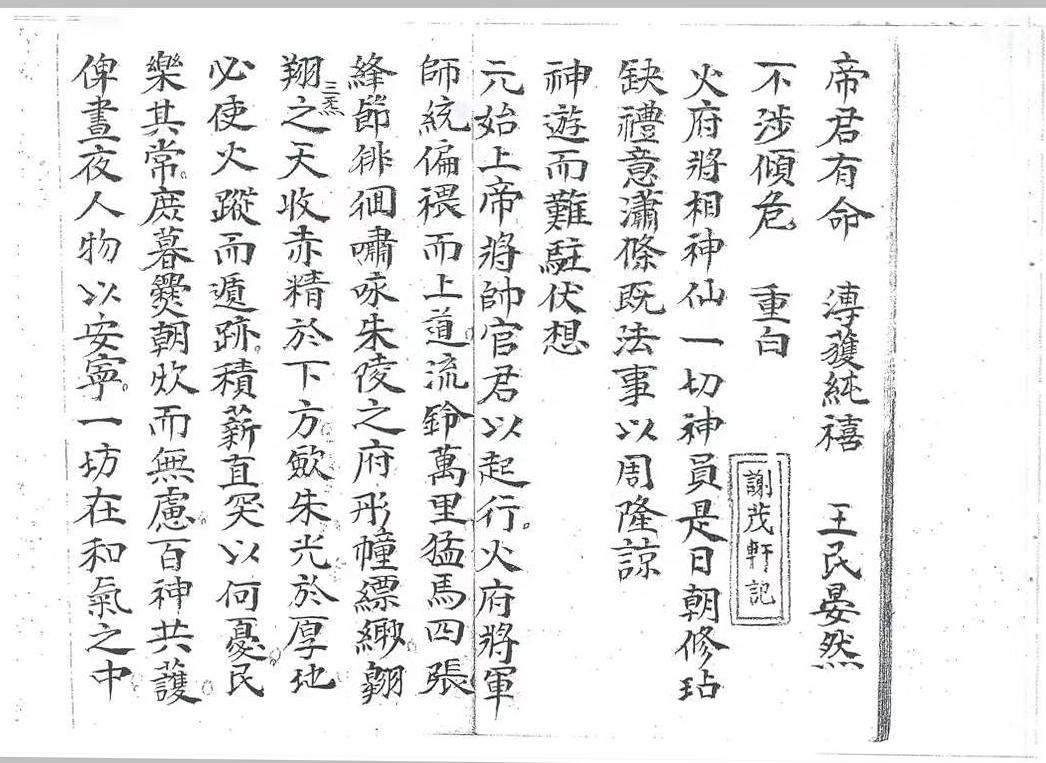 帝君有命　溥獲純禧　王民晏然
不涉傾危　重白
謝茂軒記
火府將相神仙一切神員是日朝修玷
缺禮意瀟條既法事以周隆諒
神遊而難駐伏想
元始上帝將帥官君以起行。火府將軍
師統偏禩而上道。流鈴萬里猛馬四張
絳節徘徊嘯咏朱陵之府彤幢縹緲翱
翔三炁之天收赤精於下方歛朱光於厚地
必使火蹤而遁跡。積薪直突以何憂民
樂其常。庶暮爨朝炊而無慮。百神共護
俾晝夜人物以安寧。一坊在和氣之中